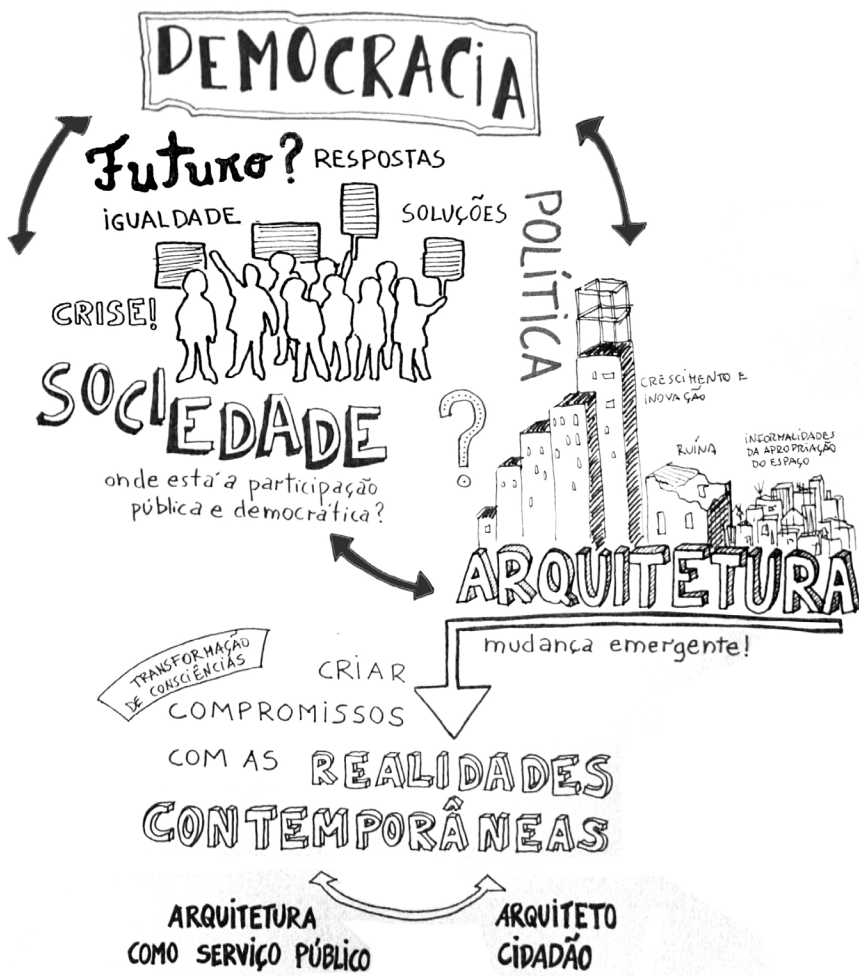 DEMOCRACiA
Futuro?
RESPOSTAS
iGUALDADE
SOLUÇÕES
CRISE!
SOCIEDADE
onde está a participação
pública e democrática?
POLÍTICA
?
CRESCIMENTO E
INOVAÇÃO
RUÍNA
iNFORMALIDADES
DA APROPRIAÇÃO
DO ESPAÇO
ARQUITETURA
mudança emergente!
TRANSFORMAÇÃO
DE CONSCIÊNCIAS
CRiAR
COMPROMISSOS
COM AS REALIDADES
CONTEMPORÂNEAS
ARQUiTETURA
COMO SERViÇO PÚBLiCO
ARQUiTETO
CiDADÃO